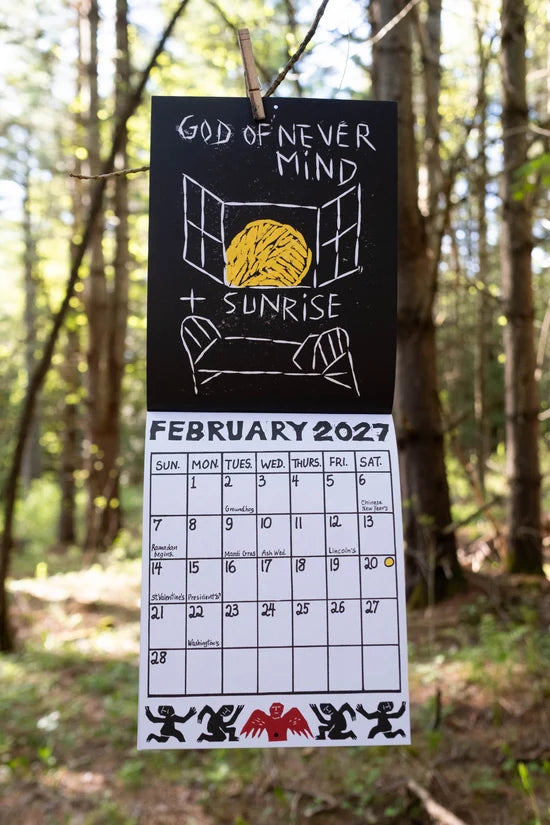 GOD OF NEVER
MIND
+ SUNRISE
FEBRUARY 2027
SUN. MON. TUES. WED. THURS. FRI. SAT.
1 2 3 4 5 6
Groundhog Chinese
New Year's
7 8 9 10 11 12 13
Ramadan
begins Mardi Gras Ash Wed. Lincoln's
14 15 16 17 18 19 20
St.Valentine's President's
21 22 23 24 25 26 27
Washington's
28